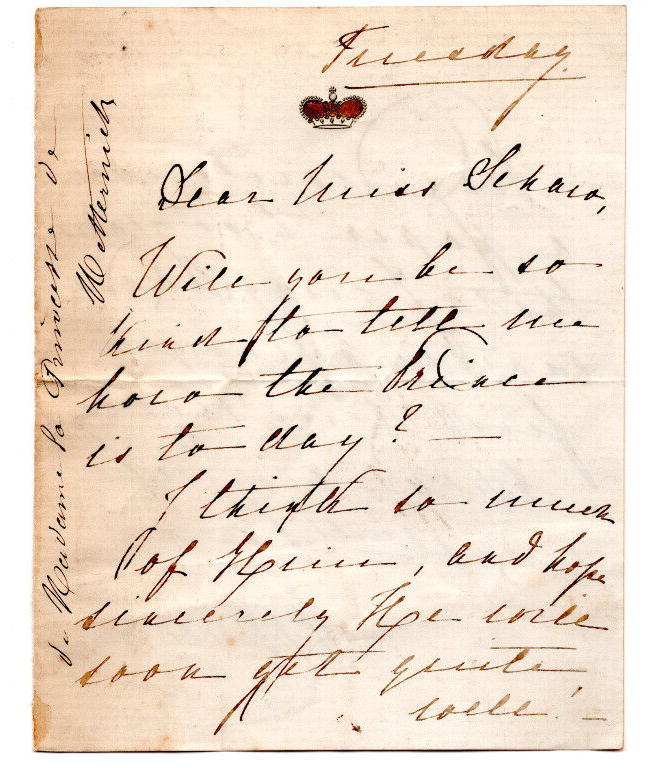 Tuesday
Dear Miss Schaw,
Will you be so
kind to tell me
how the Prince
is to day? —
I think so much
of Him, and hope
sincerely He will
soon get quite
well! —
de Madame la Princesse de
Metternich